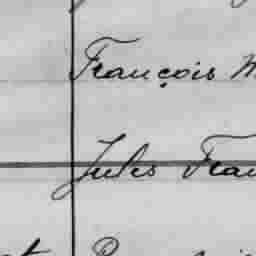 François M
Jules Fran